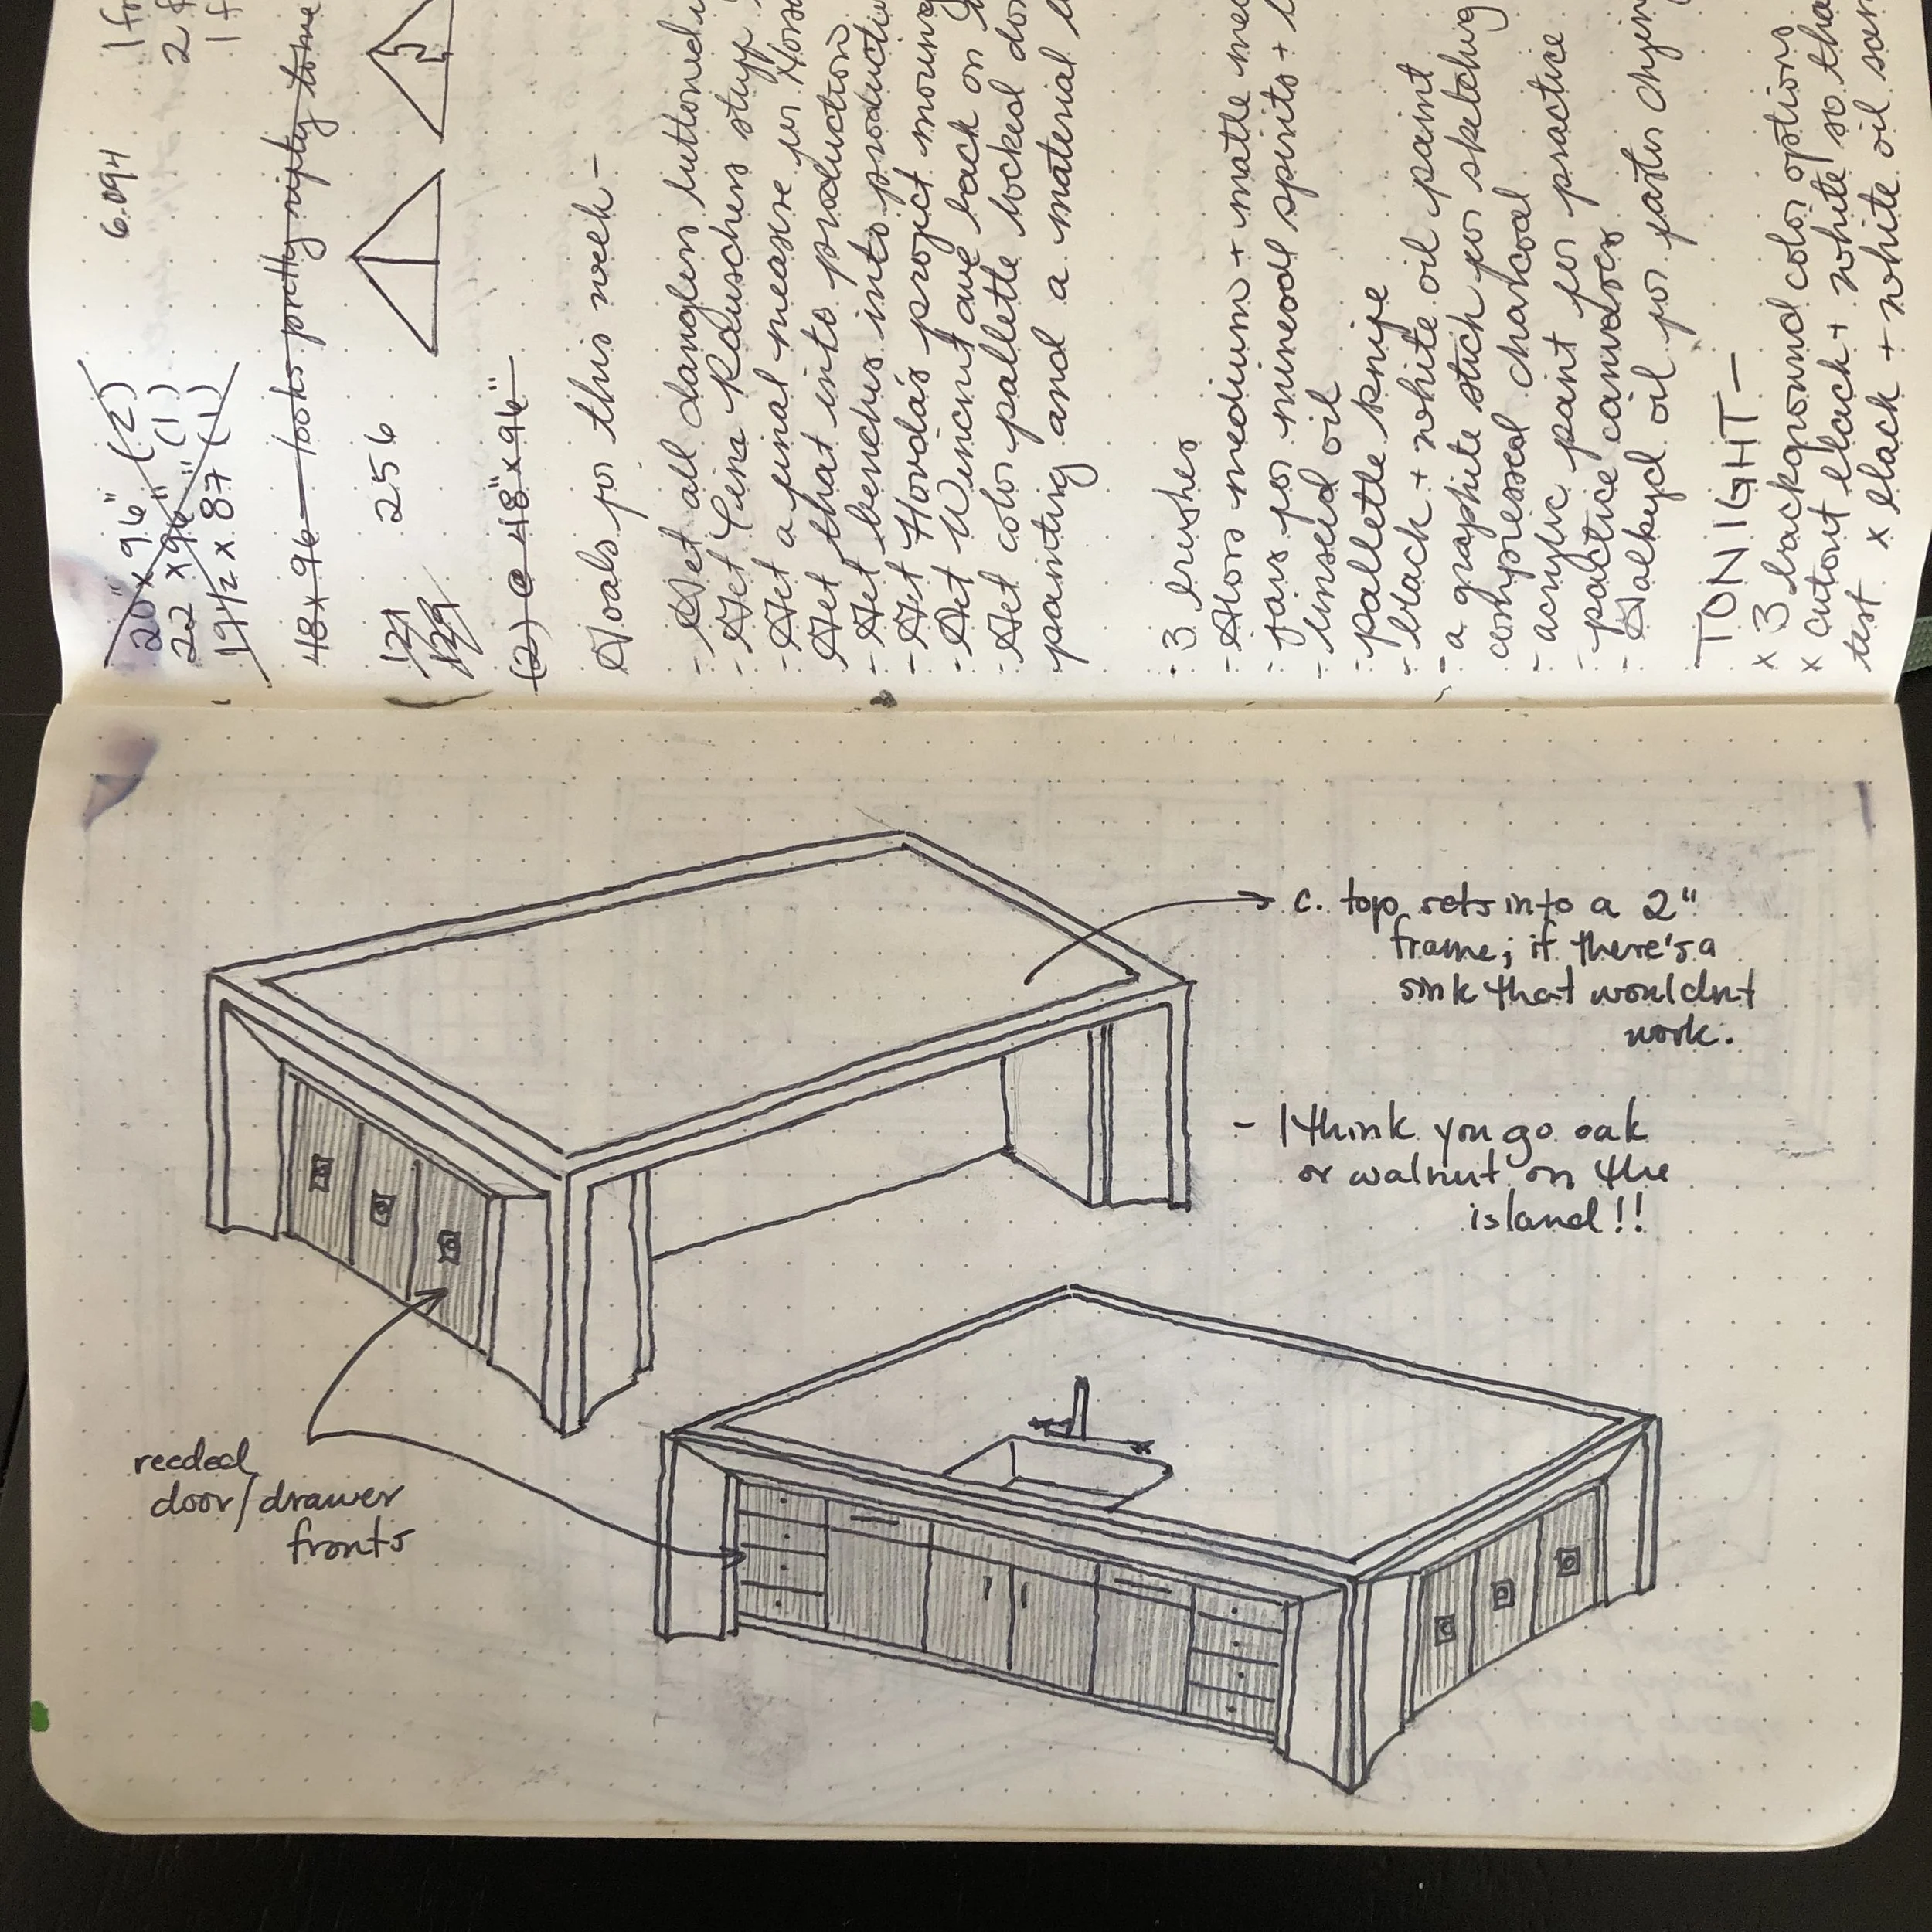 20" x 96" (2)
22 x 96" (1)
19 1/2 x 87 (1)
6.094
48x96 - looks pretty nifty tome
256
121
129
(2) @ 48" x 96"
Goals for this week -
- Get all danglers buttoned
- Get Gina Rauschers stuff
- Get a final measure for
Get that into production
- Get benches into
- Get project moving
- Get back on
- Get color pallette locked
painting and a material
- 3 brushes
- medium + matte
- jars for mineral spirits +
- linseed oil
- pallette knife
- black + white oil paint
- a graphite stick for sketching
compressed charcoal
- acrylic paint for practice
- practice canvases
- Galkyd oil for faster drying
TONIGHT -
x 3 background color options
x cutout black + white so
test x black + white oil
c. top sets into a 2"
frame; if there's a
sink that wouldnt
work.
- I think you go oak
or walnut on the
island!!
reeded
door/drawer
fronts